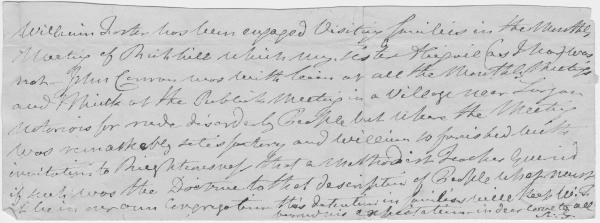 William Forster has been engaged Visiting families in the Monthly
Meeting of Rich hill which my Sister Abigail (as I had) was
not. John Conran was with him at all the Monthly Meetings
and I think at the Publick Meeting in a Village near Lurgan
notorious for rude disorderly People but where the Meeting
was remarkably satisfactory and William so furnished with
invitation to Righteousness that a Methodist Teacher queried
if such was the Doctrine to that description of People what must
it be in our own Congregation this detention in families will keep W. F.
beyond his expectation in dear love to all